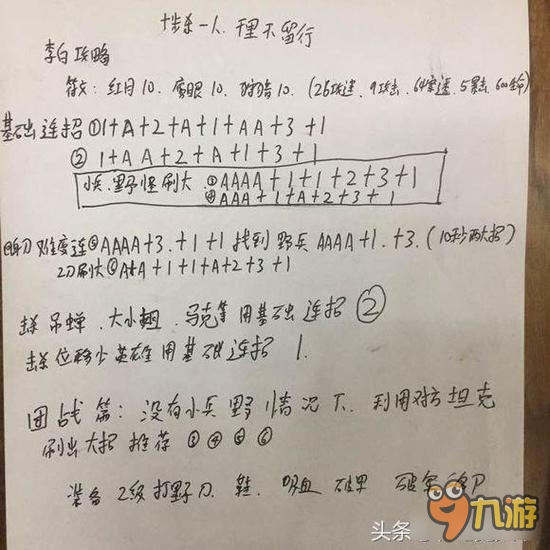 十步杀一人、千里不留行
李白攻略
符文：红月10、鹰眼10、狩猎10、(26攻速、9攻击、64穿透、5暴击、600生命)
基础连招 ①1+A+2+A+1+AA+3+1
② 1+AA+2+A+1+3+1
小兵、野怪刷大 ③AAAA+1+1+2+3+1
④AAA+1+A+2+3+1
难度连⑤AAAA+3.+1+1 找到野兵 AAAA+1.+3.(10秒两大招)
2刀刷大⑥AAA+1+1+A+2+3+1
貂蝉、大小、马克等用基础连招②
位移少英雄用基础连招 1.
团战篇：没有小兵野情况下、利用对方坦克
刷出大招 推荐 ③④⑤⑥
装备 2级打野刀 鞋、吸血 破甲
头条
九游